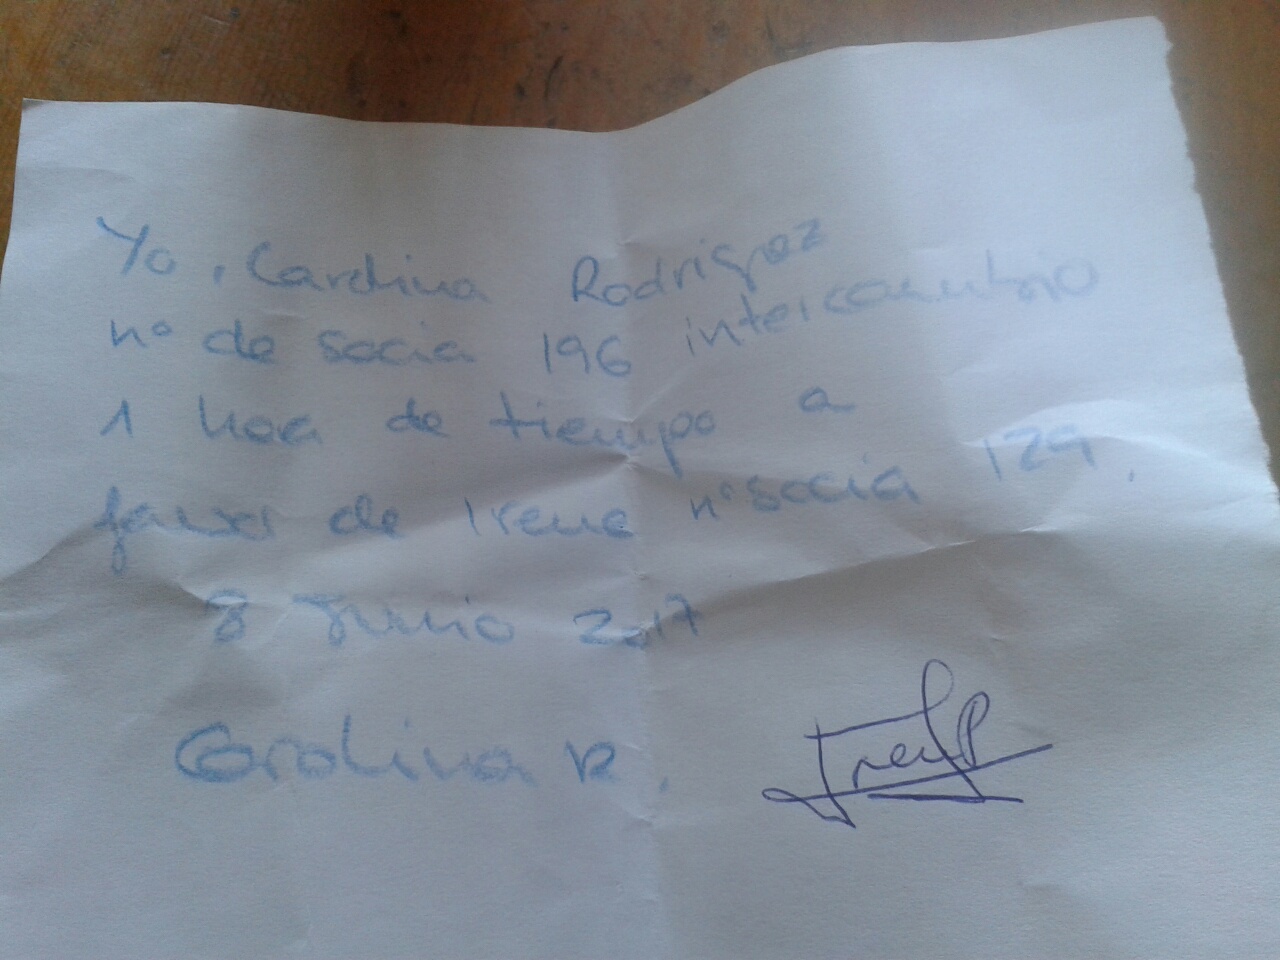 Yo, Carolina Rodriguez
nº de socia 196 intercambio
1 hora de tiempo a
favor de Irene nº socia 129.
8 Junio 2017
Carolina R.
Irene P